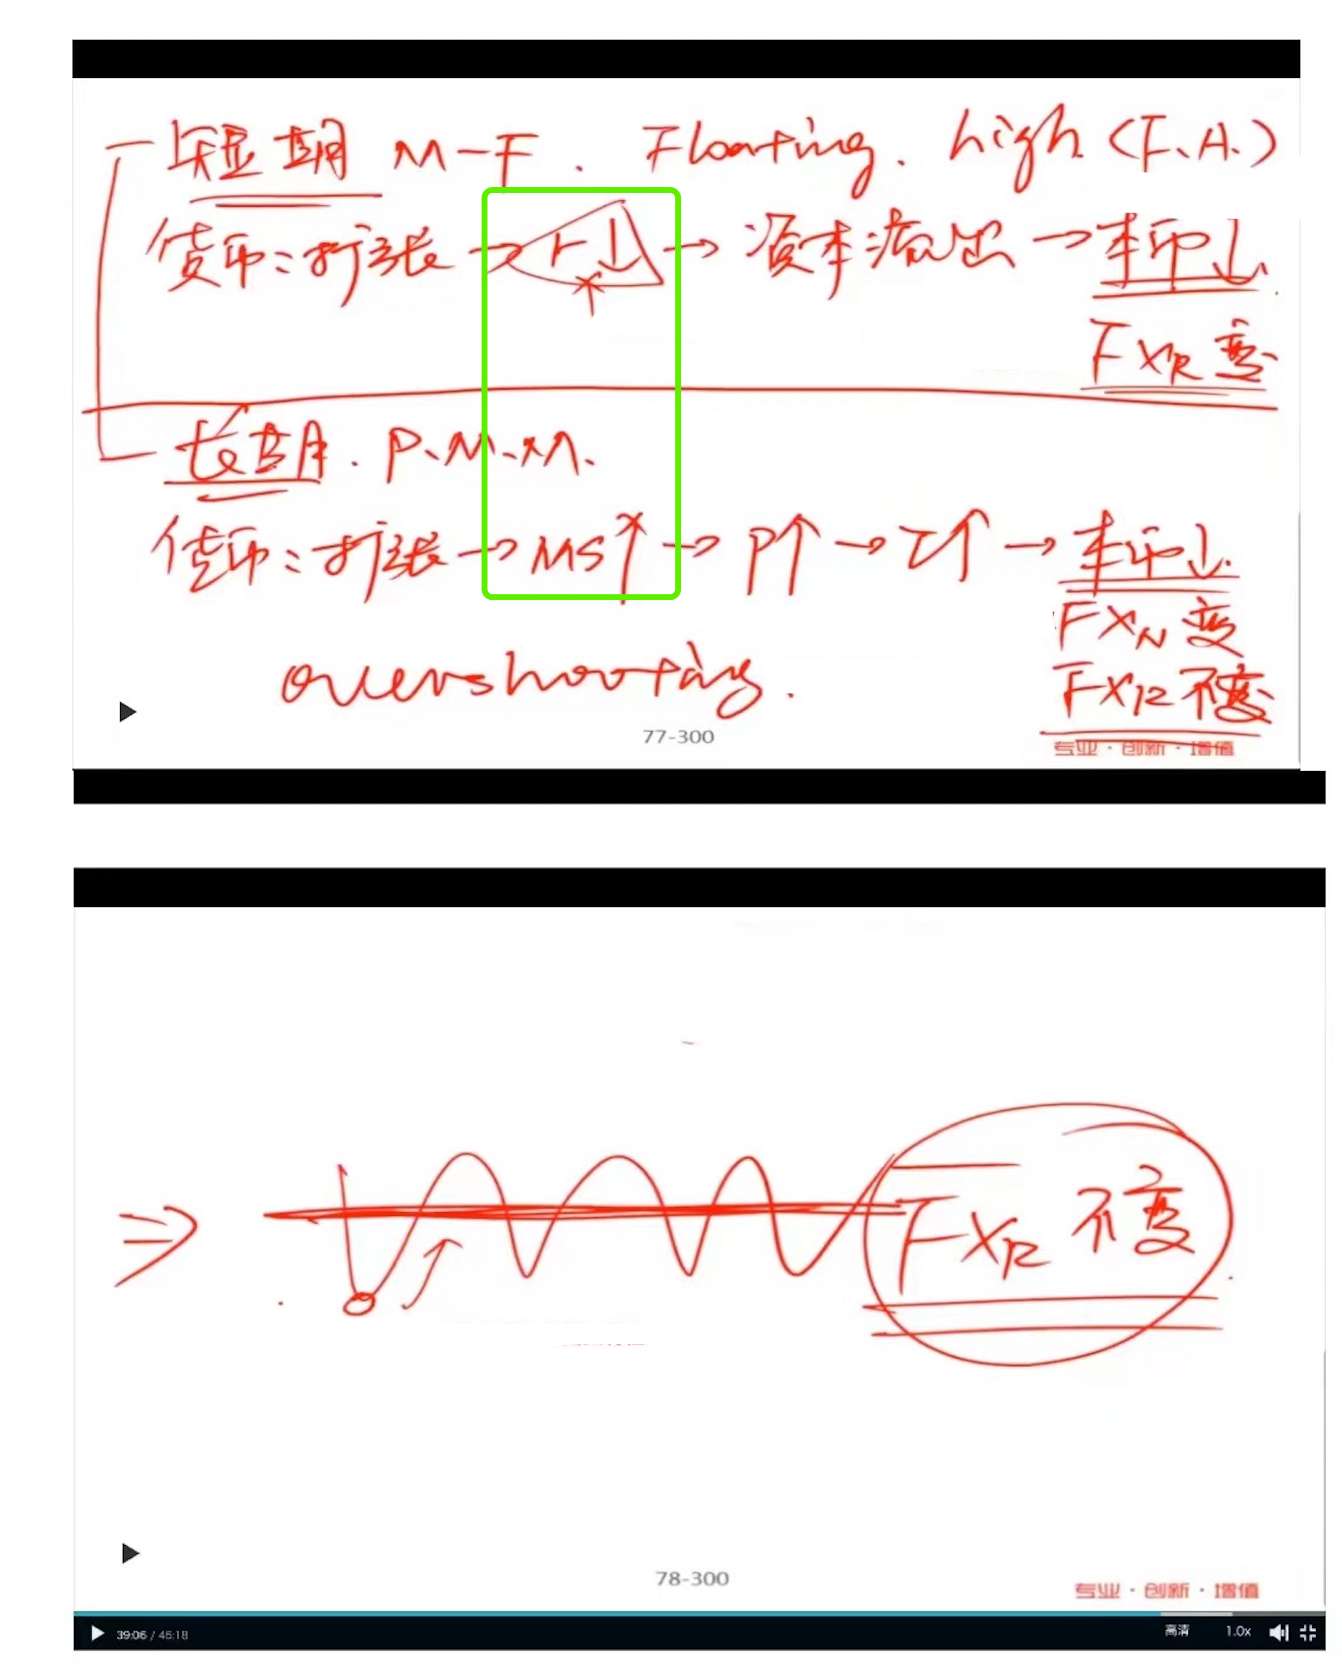 短期 M-F. Floating. high (F.A.)
货币:扩张 → r↓ → 资本流出 → 本币↓.
FXR 变
长期. P.M.M.
货币:扩张 → MS↑ → P↑ → π↑ → 本币↓.
FXN 变
overshooting.
FXR 不变
77-300
专业·创新·增值
⇒ FXR 不变
78-300
专业·创新·增值
39:06 / 45:18
高清
1.0x